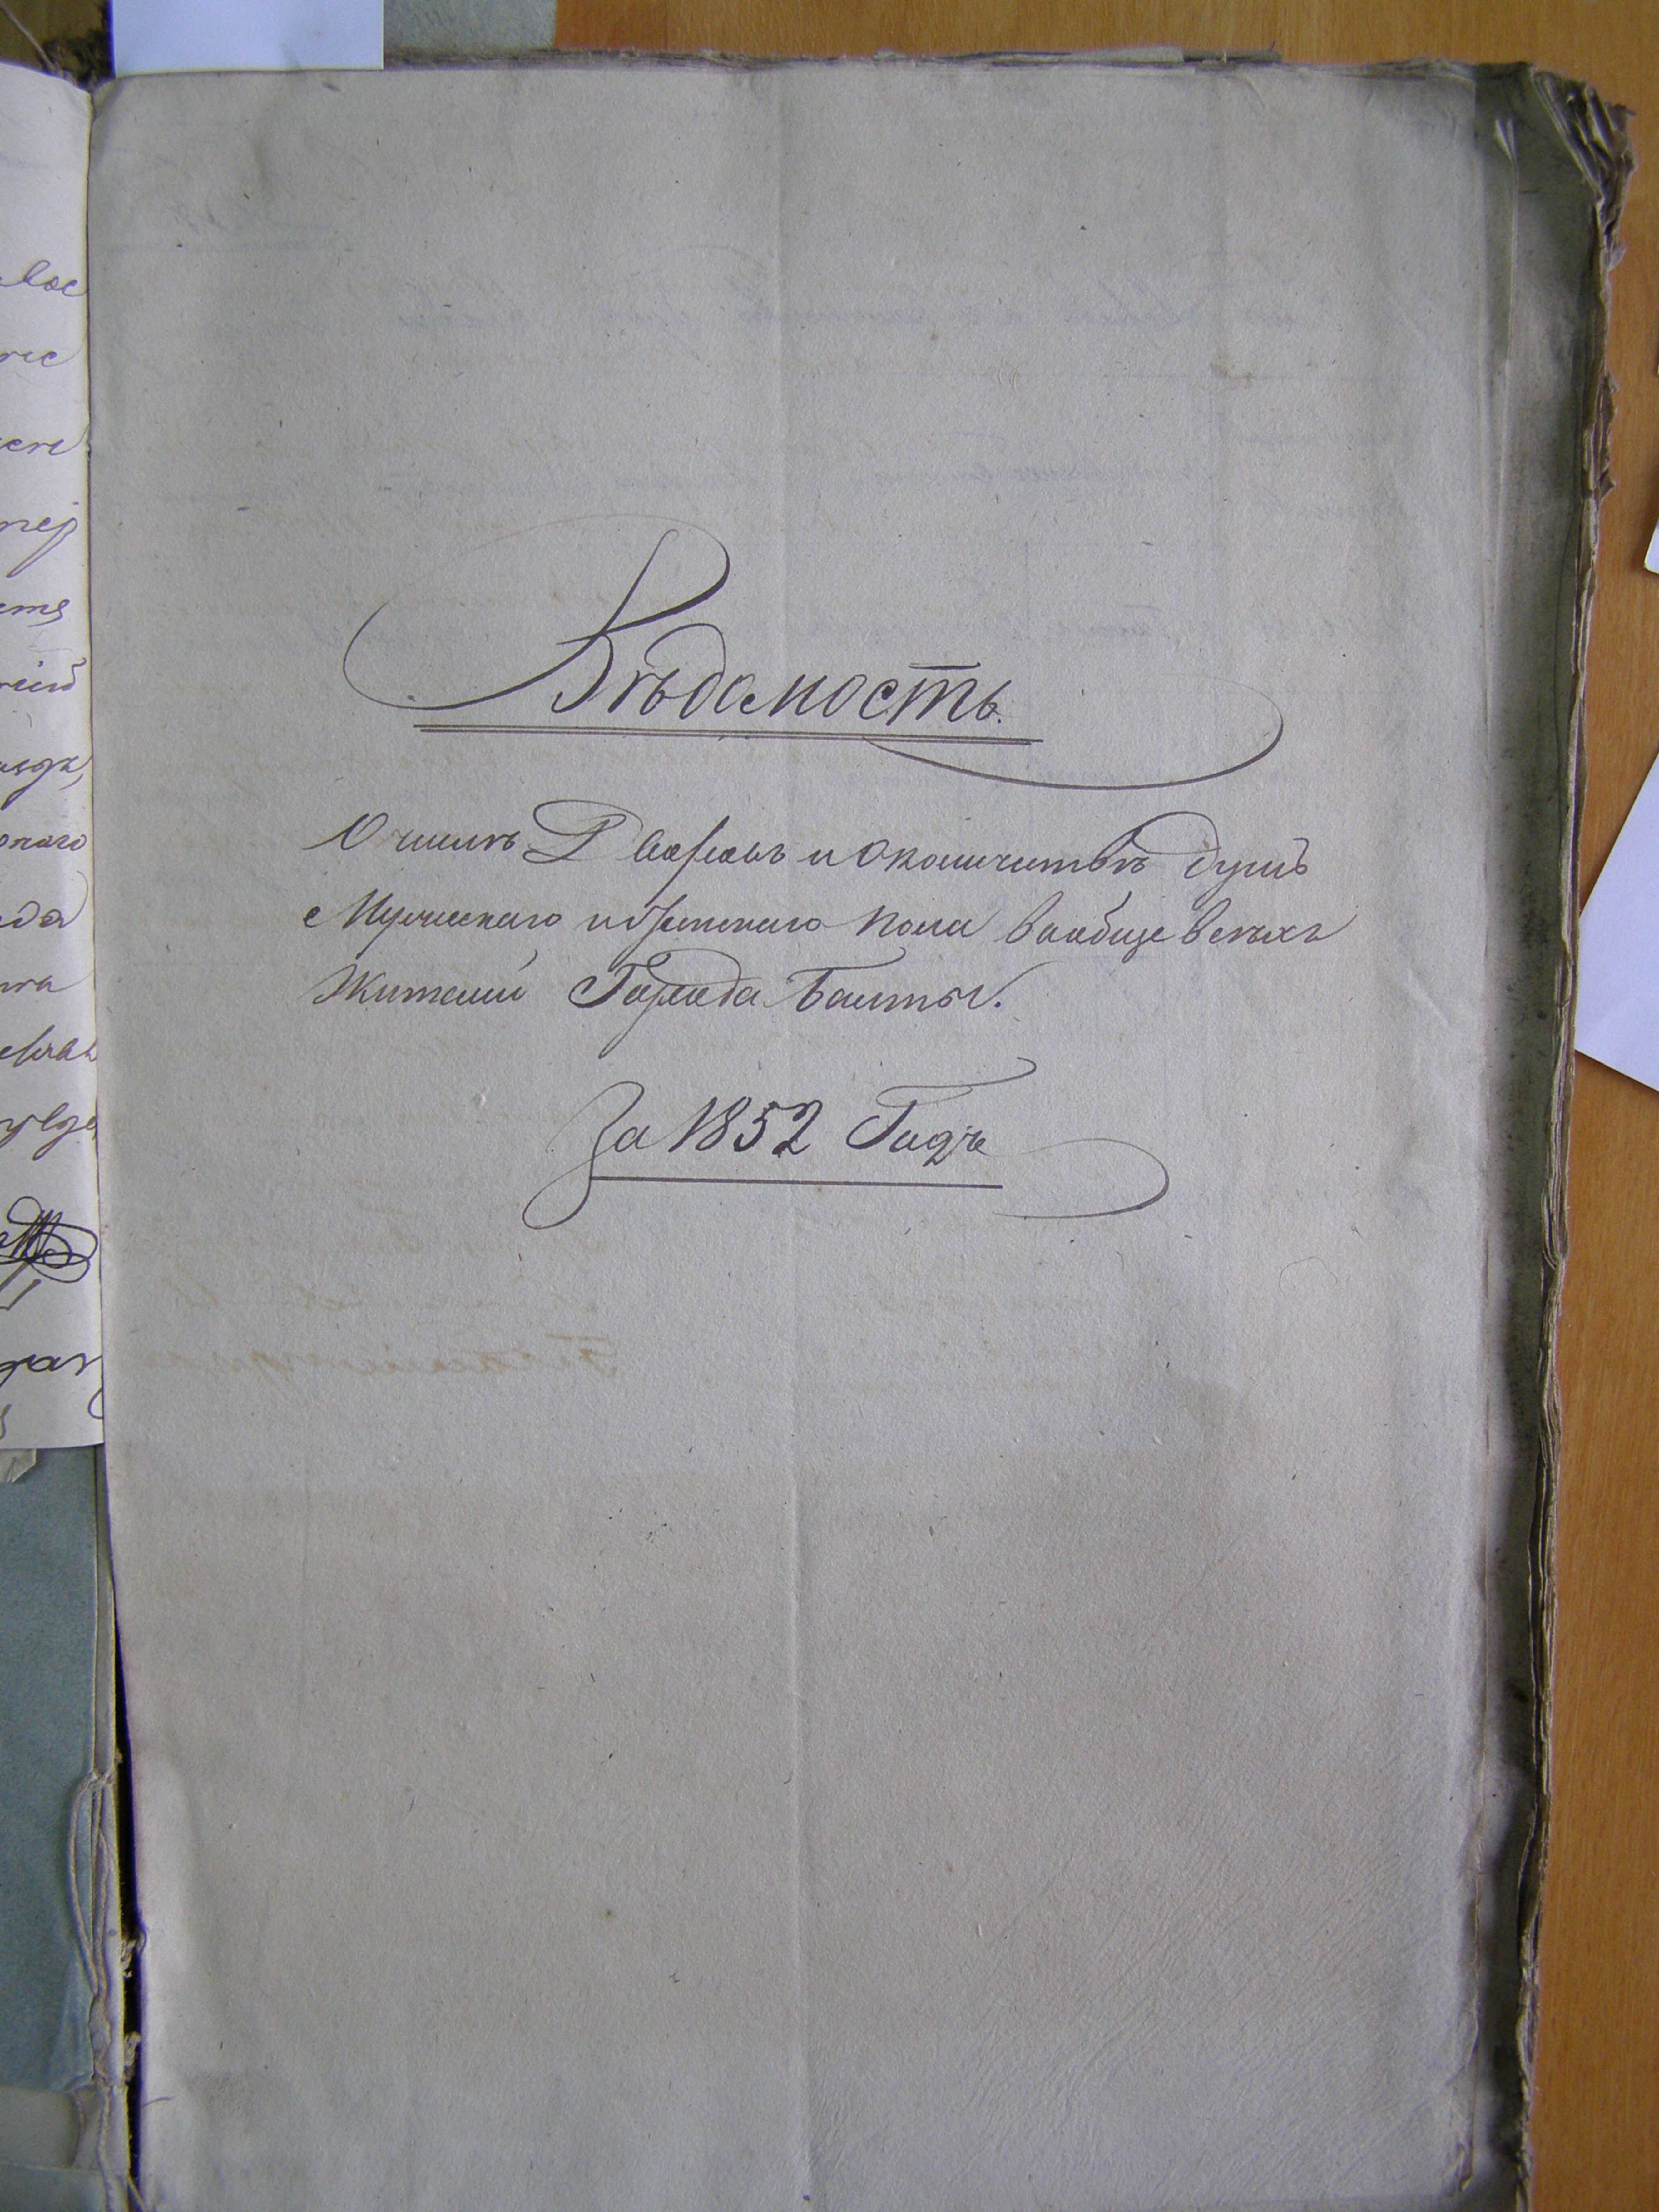 Вѣдомость.
О числѣ Дворовъ и о количествѣ душъ
Мужескаго и женскаго пола вообще всѣхъ
Жителей Города Балты.
За 1852 Годъ